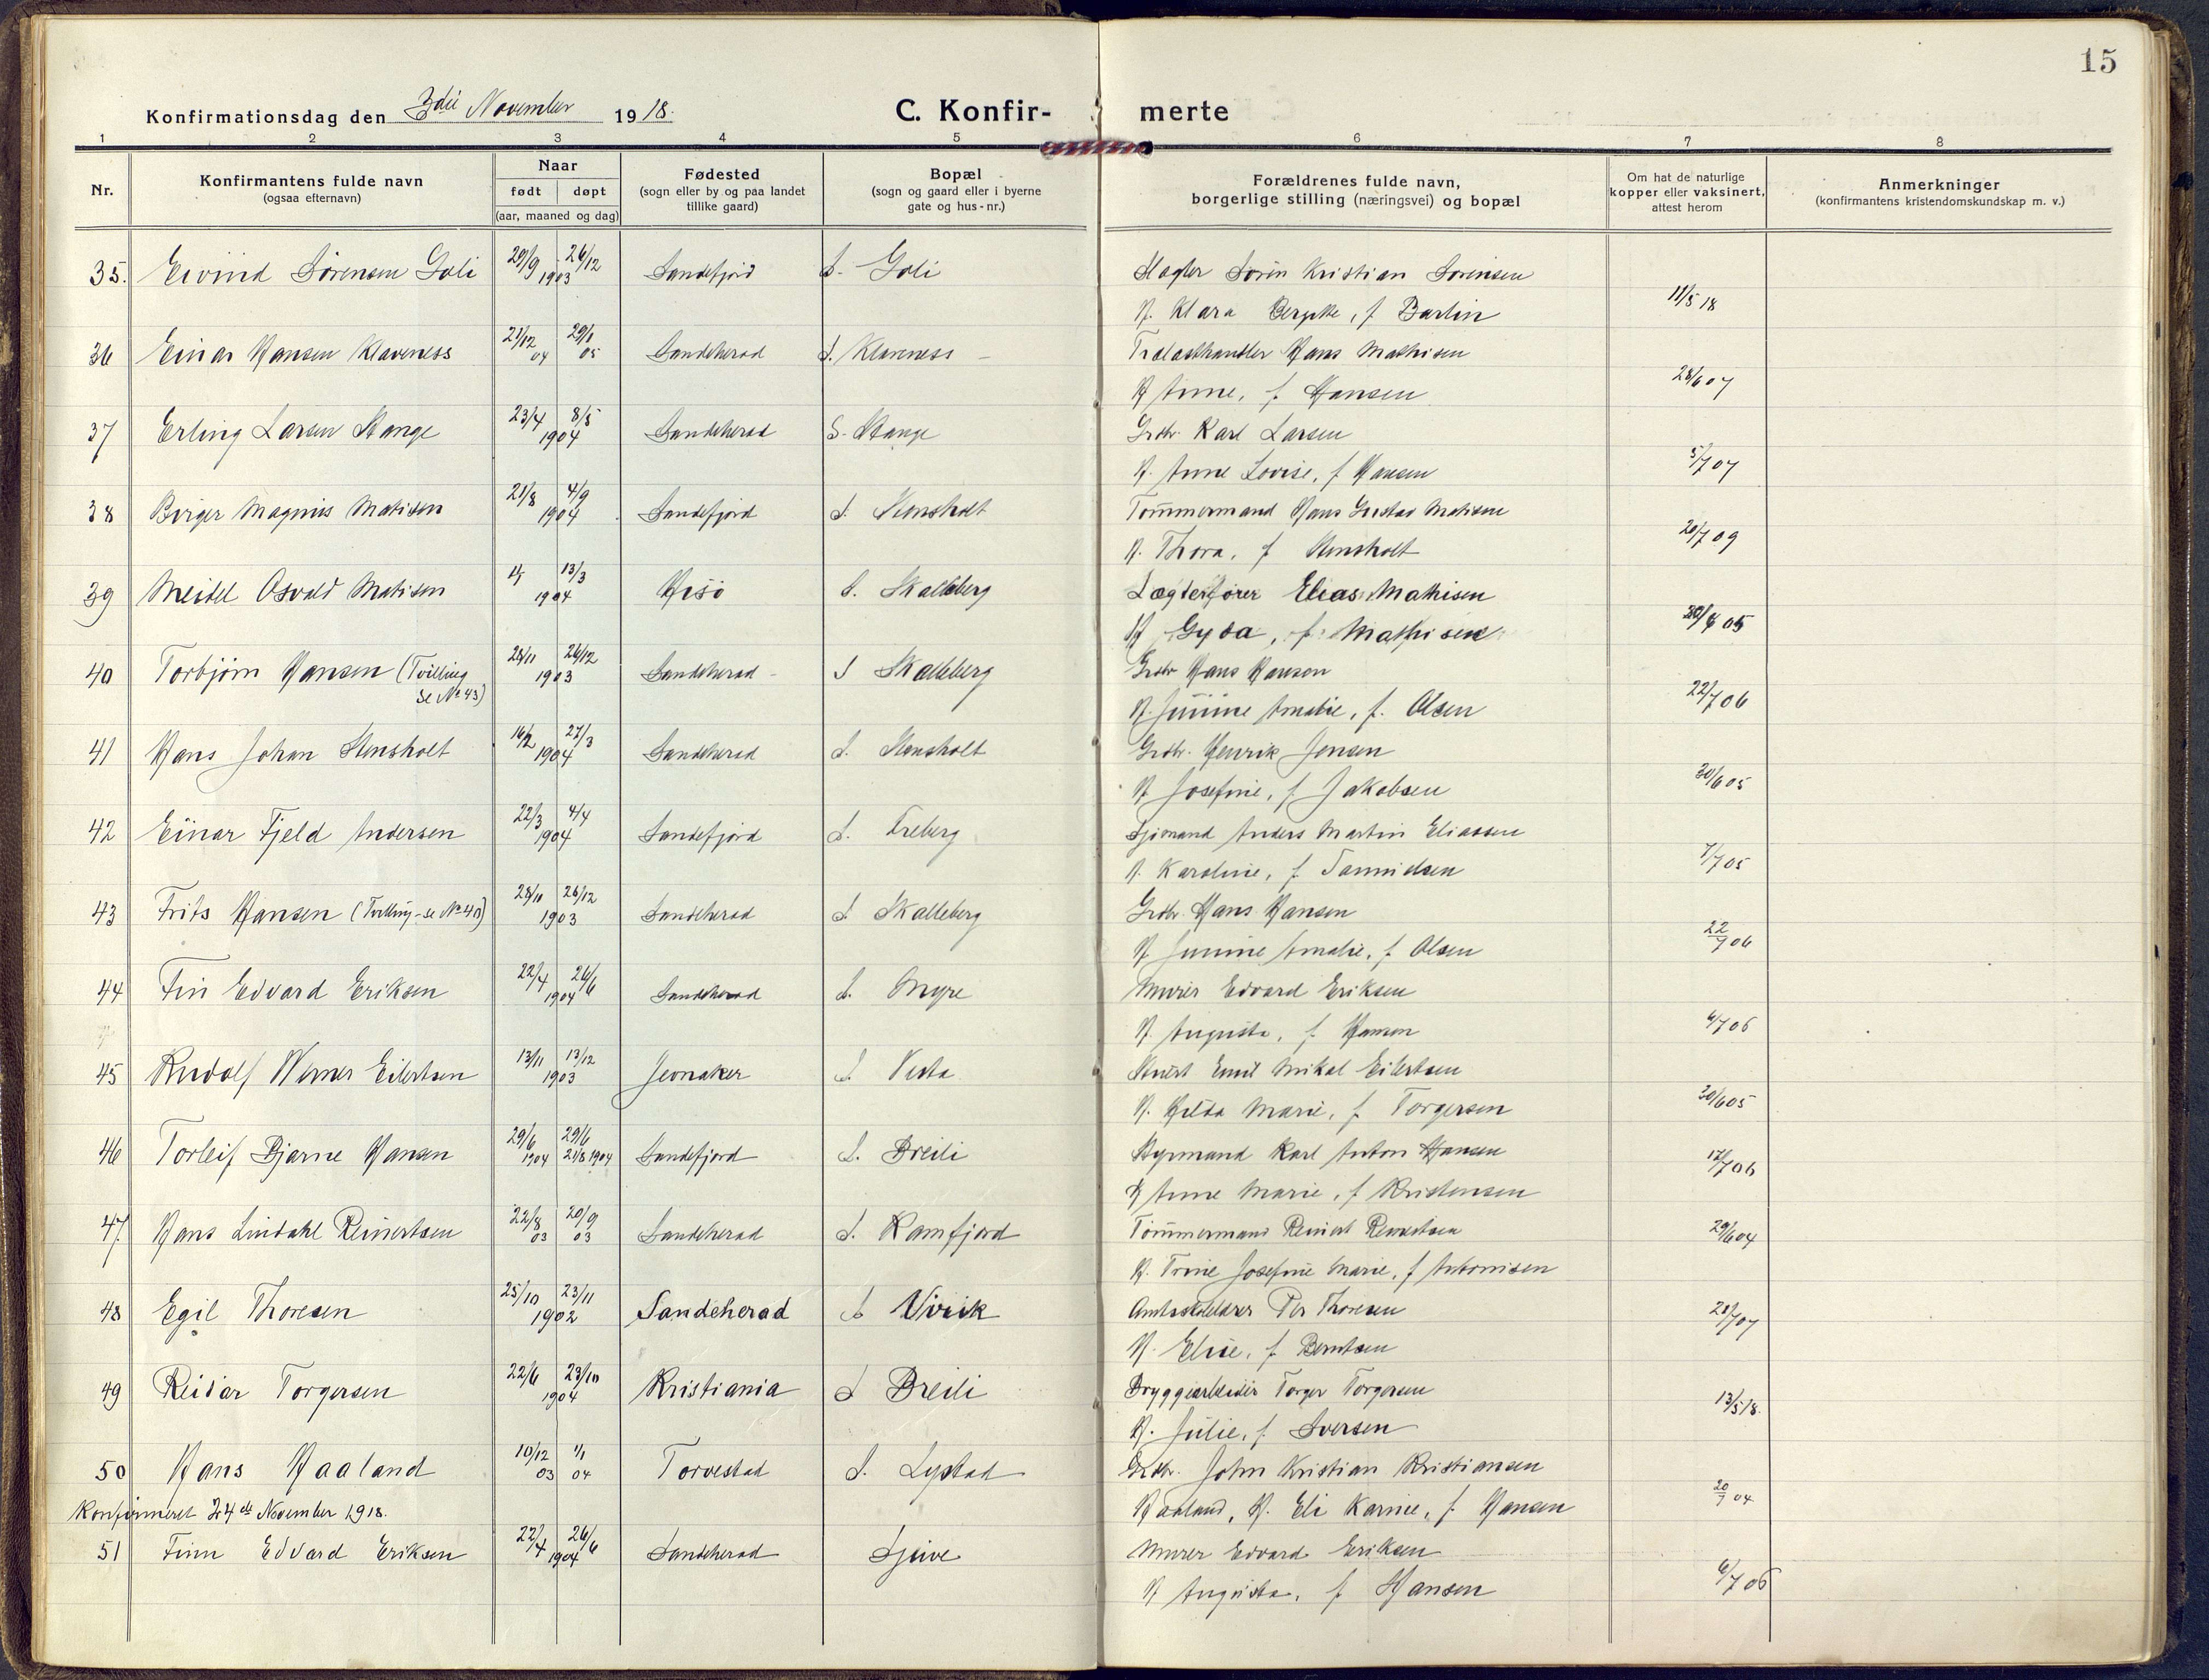 15
Konfirmationsdag den 3die November 1918.
C. Konfir-merte
1 2 3 4 5 6 7 8
Nr.
Konfirmantens fulde navn
(ogsaa efternavn)
Naar
født døpt
(aar, maaned og dag)
Fødested
(sogn eller by og paa landet
tillike gaard)
Bopæl
(sogn og gaard eller i byerne
gate og hus-nr.)
Forældrenes fulde navn,
borgerlige stilling (næringsvei) og bopæl
Om hat de naturlige
kopper eller vaksinert,
attest herom
Anmerkninger
(konfirmantens kristendomskundskap m. v.)
35. Eivind Sörensen Goli 29/9 26/12 1903 Sandefjord S. Goli Slagter Sören Kristian Sörensen
H. Klara f. Bartin 11/5 18
36 Einar Hansen Klaveness 21/12 04 29/1 05 Sandeherad S. Klaveness Trælasthandler Hans Mathisen
H Anne, f Hansen 28/6 07
37 Erling Larsen Stange 23/4 8/5 1904 Sandeherad S. Stange Grdbr. Karl Larsen
H. Anne Lovise, f Hansen 5/7 07
38 Birger Magnus Matisen 21/8 4/9 1904 Sandefjord S. Stensholt Tømmermand Hans Gustav Matisen
H. Thora, f Stensholt 20/7 09
39 Meidel Osvald Matisen 13/3 1904 Hisö S. Skalleberg Lægterfører Elias Mathisen
H Gyda, f. Mathisen 05
40 Torbjörn Hansen (Tvilling 28/11 26/12 1903 Sandeherad S Skalleberg Grdbr Hans Hansen
se No 43)
H. Junine Amalie, f. Olsen 22/7 06
41 Hans Johan Stensholt 16/2 27/3 1904 Sandeherad S. Stensholt Grdbr. Henrik Jensen
H Josefine, f Jakobsen 30/6 05
42 Einar Fjeld Andersen 22/3 4/4 1904 Sandefjord S. Freberg Sjömand Anders Martin Eliassen
H. Karoline, f. 7/7 05
43 Frits Hansen (Tvilling - se No 40) 28/11 26/12 1903 Sandeherad S Skalleberg Grdbr. Hans Hansen
H Junine Amalie, f Olsen 22/7 06
44 Fin Edvard Eriksen 22/4 26/6 1904 Sandeherad S. Myre Murer Edvard Eriksen
H. Augusta, f. Hansen 6/7 06
45 Rudolf Werner Eilertsen 13/11 13/12 1903 Jevnaker S Vesta Emil Mikal Eilertsen
H. Hilda Marie, f Torgersen 30/6 05
46 Torleif Bjarne Hansen 29/6 1904 29/6 21/8 1904 Sandefjord S. Breili Styrmand Karl Anton Hansen 06
H Anne Marie, f Kristensen
47 Hans Lindahl Reinertsen 22/8 03 20/9 03 Sandeherad S. Ramfjord Tømmermand Reinert Reinertsen 29/6 04
H. Trine Josefine Marie, f Antonisen
48 Egil Thoresen 25/10 23/11 1902 Sandeherad S Virik Amtsskolelærer Per Thoresen 07
H. Elise, f Berntsen
49 Reidar Torgersen 22/6 23/10 1904 Kristiania S Breili Bryggearbeider Torger Torgersen
H. Julie, f. Iversen 13/5 18.
50 Hans Haaland 10/12 03 1/1 04 Torvestad S. Lystad Grdbr. John Kristian Kristiansen
Haaland, H. Eli Karine, f Hansen 20/7 04
Konfirmeret 24de November 1918.
51 Finn Edvard Eriksen 22/4 26/6 1904 Sandeherad Sjuve Murer Edvard Eriksen
H Augusta, f Hansen 6/7 06